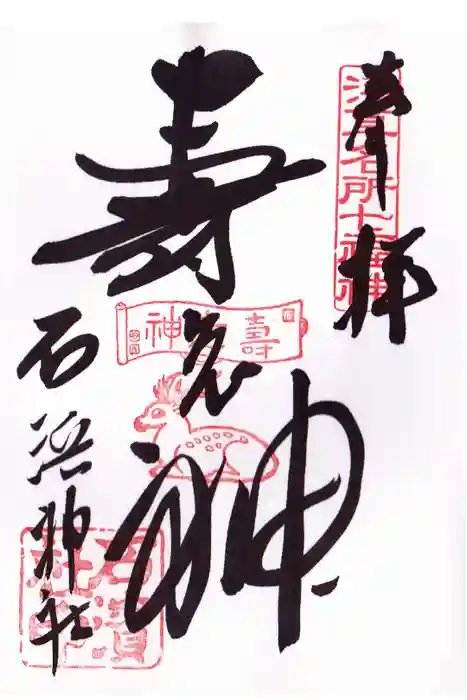 奉拝
浅草名所七福神
寿老神
壽老神
石浜神社
石濱神社